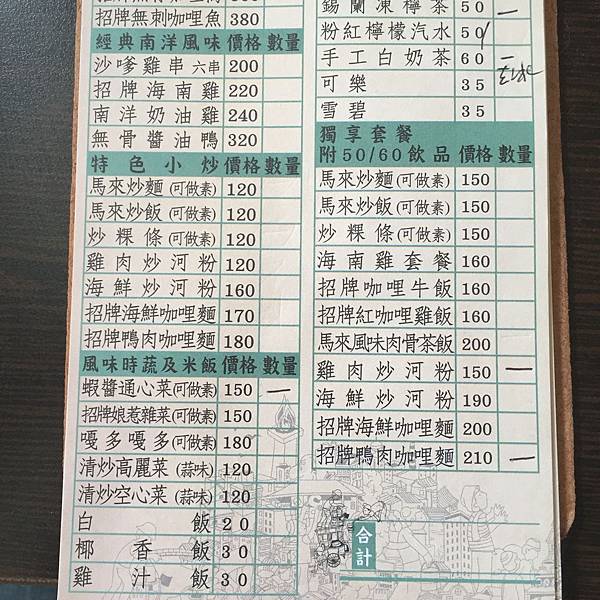 招牌無刺咖哩魚 380
經典南洋風味 價格 數量
沙嗲雞串 六串 200
招牌海南雞 220
南洋奶油雞 240
無骨醬油鴨 320
特色小炒 價格 數量
馬來炒麵(可做素) 120
馬來炒飯(可做素) 120
炒粿條(可做素) 120
雞肉炒河粉 120
海鮮炒河粉 160
招牌海鮮咖哩麵 170
招牌鴨肉咖哩麵 180
風味時蔬及米飯 價格 數量
蝦醬通心菜(可做素) 150 一
招牌娘惹雜菜(可做素) 150
嘎多嘎多(可做素) 180
清炒高麗菜(蒜味) 120
清炒空心菜(蒜味) 120
白飯 20
椰香飯 30
雞汁飯 30
錫蘭凍檸茶 50 一
粉紅檸檬汽水 50
手工白奶茶 60 一
可樂 35
雪碧 35
獨享套餐
附50/60飲品 價格 數量
馬來炒麵(可做素) 150
馬來炒飯(可做素) 150
炒粿條(可做素) 150
海南雞套餐 160
招牌咖哩牛飯 160
招牌紅咖哩雞飯 160
馬來風味肉骨茶飯 200
雞肉炒河粉 150 一
海鮮炒河粉 190
招牌海鮮咖哩麵 200
招牌鴨肉咖哩麵 210 一
合計